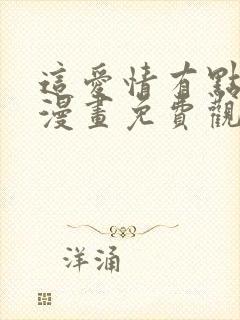 這愛情有點
漫畫免費觀
洋涌